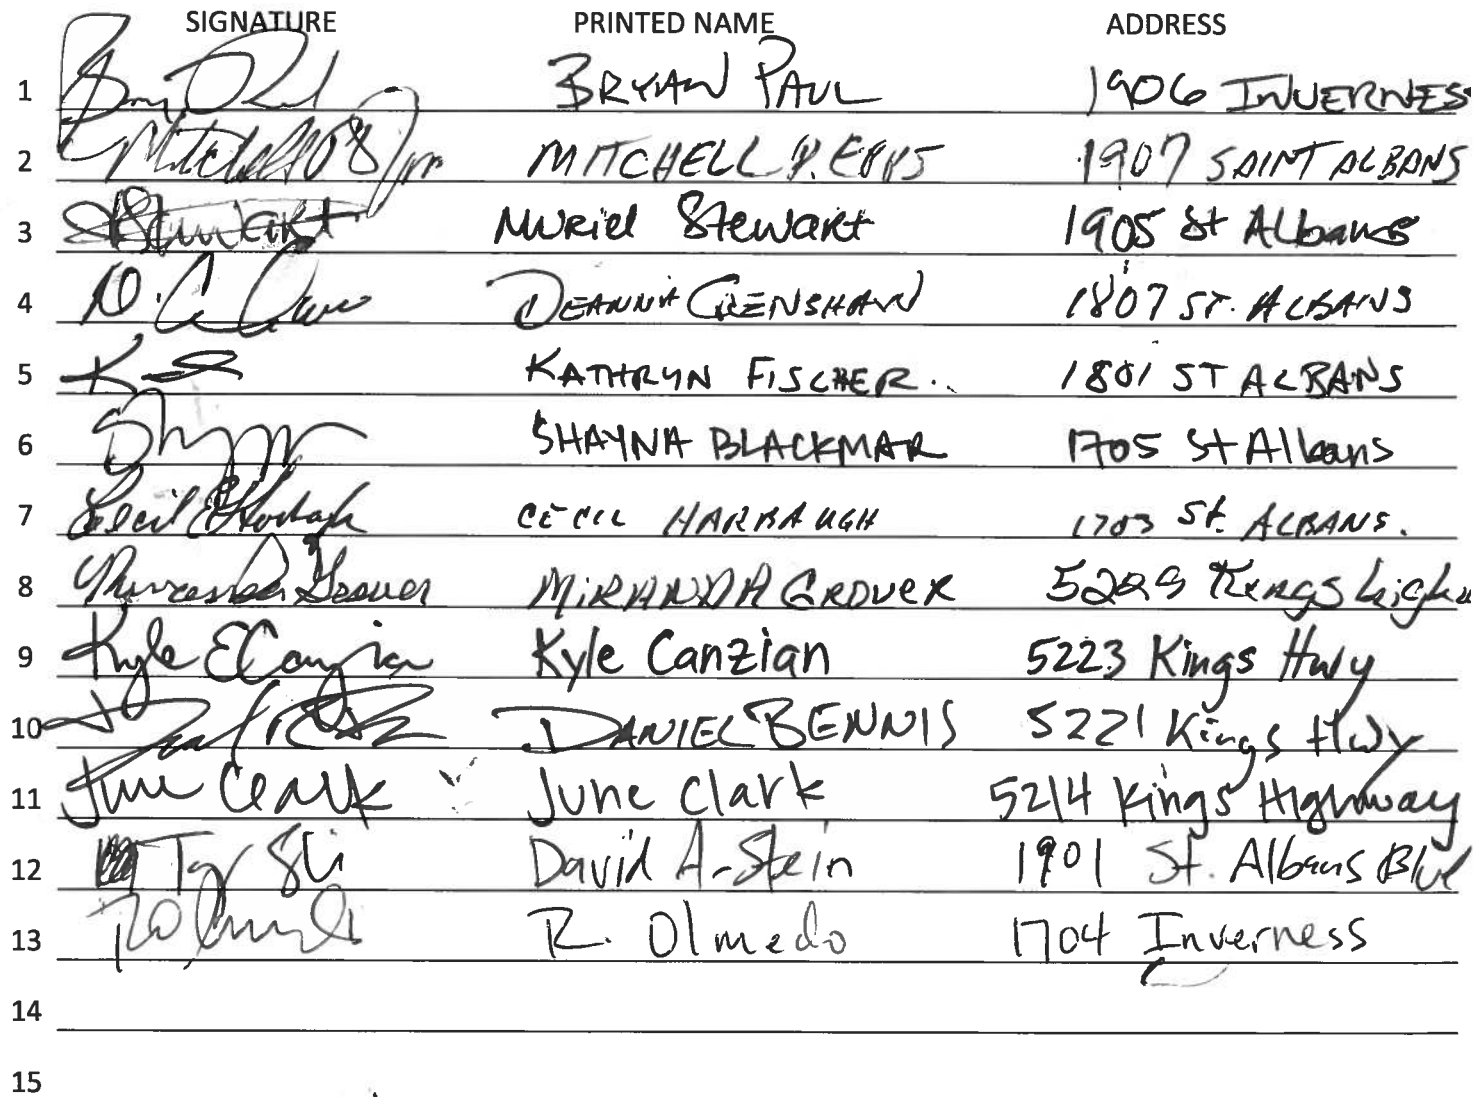 SIGNATURE PRINTED NAME ADDRESS
1 BRYAN PAUL 1906 INVERNESS
2 MITCHELL P. EPPS 1907 SAINT ALBANS
3 Stewart Muriel Stewart 1905 St Albans
4 DEANNA CRENSHAW 1807 ST. ALBANS
5 KATHRYN FISCHER. 1801 ST ALBANS
6 SHAYNA BLACKMAR 1705 St Albans
7 Cecil E Harbaugh CECIL HARBAUGH 1703 St. ALBANS.
8 Miranda Grover MIRANDA GROVER Kings
9 Kyle E Canzian Kyle Canzian 5223 Kings Hwy
10 DANIEL BENNIS 5221 Kings Hwy
11 June Clark June Clark 5214 Kings Highway
12 David A-Stein 1901 St. Albans Blvd
13 R. Olmedo 1704 Inverness
14
15